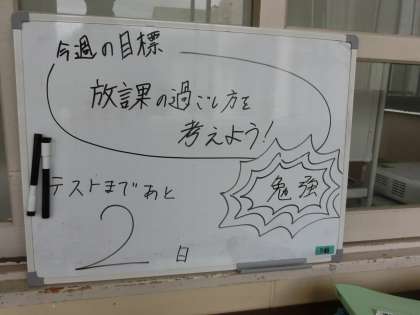 今週の目標
放課の過ごし方を
考えよう!
テストまであと
2
日
勉強